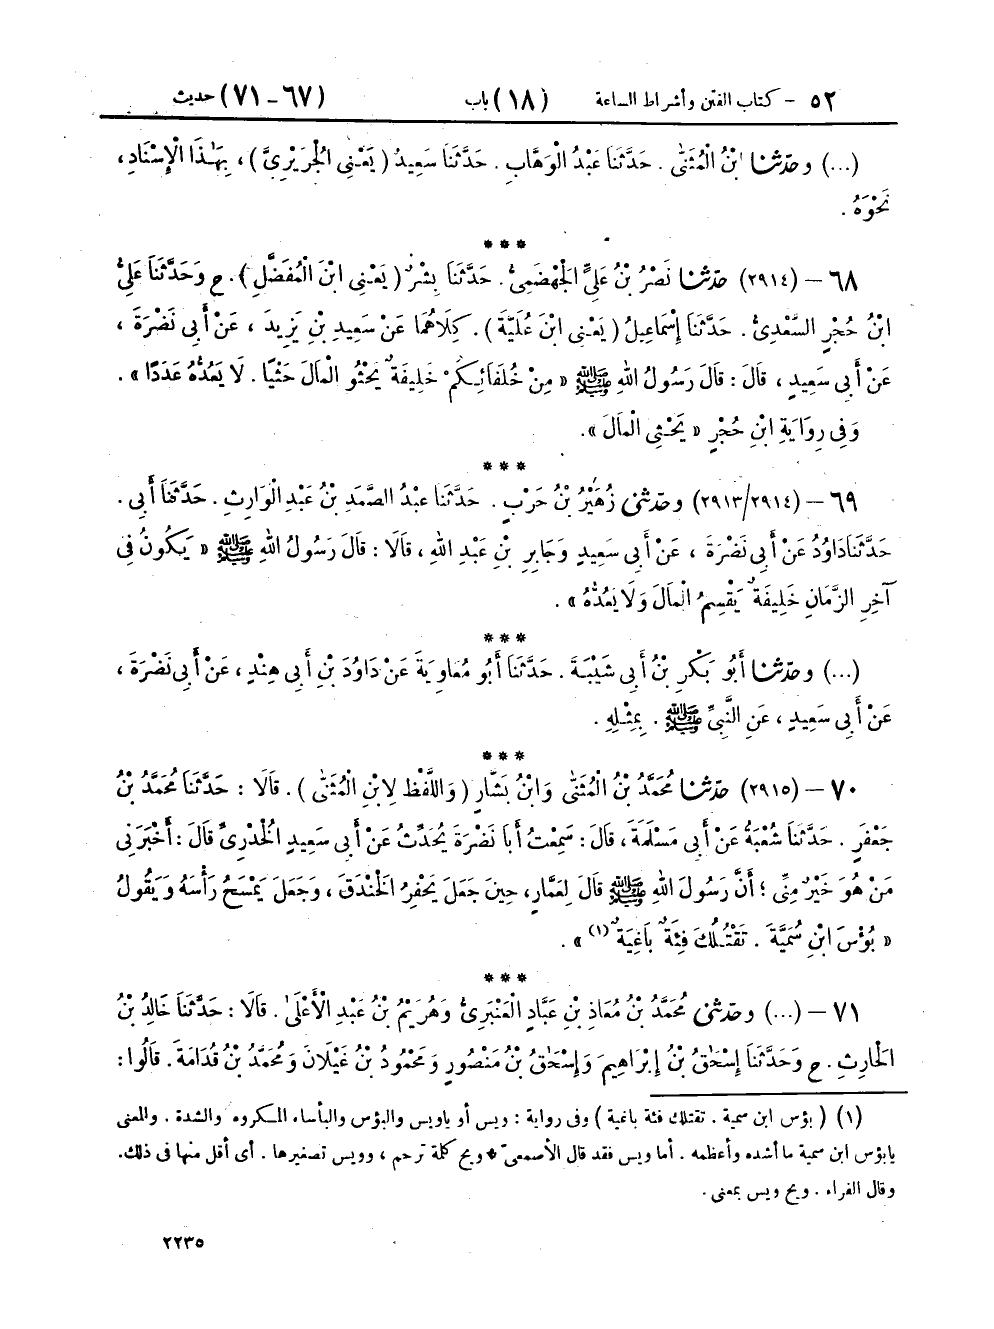 ٥٢ - كتاب الفتن وأشراط الساعة (١٨) باب (٦٧-٧١) حديث
(...) وحدثنا ابْنُ الْمُثَنَّى . حَدَّثَنَا عَبْدُ الْوَهَّابِ . حَدَّثَنَا سَعِيدُ ( يَعْنِى الْجُرَيْرِىَّ ) ، بِهَٰذَا الْإِسْنَادِ ،
نَحْوَهُ .
***
٦٨ - (٢٩١٤) حدثنا نَصْرُ بْنُ عَلِىٍّ الْجَهْضَمِىُّ . حَدَّثَنَا بِشْرٌ ( يَعْنِى ابْنَ الْمُفَضَّلِ ) . ح وَحَدَّثَنَا عَلِىُّ
ابْنُ حُجْرٍ السَّعْدِىُّ . حَدَّثَنَا إِسْمَاعِيلُ ( يَعْنِى ابْنَ عُلَيَّةَ ) . كِلَاهُمَا عَنْ سَعِيدِ بْنِ يَزِيدَ ، عَنْ أَبِى نَضْرَةَ ،
عَنْ أَبِى سَعِيدٍ ، قَالَ : قَالَ رَسُولُ اللهِ ﷺ « مِنْ خُلَفَائِكُمْ خَلِيفَةٌ يَحْثُو الْمَالَ حَثْيًا . لَا يَعُدُّهُ عَدَدًا » .
وَفِى رِوَايَةِ ابْنِ حُجْرٍ « يَحْثِى الْمَالَ » .
***
٦٩ - (٢٩١٣/٢٩١٤) وحدثنى زُهَيْرُ بْنُ حَرْبٍ . حَدَّثَنَا عَبْدُ الصَّمَدِ بْنُ عَبْدِ الْوَارِثِ . حَدَّثَنَا أَبِى .
حَدَّثَنَا دَاوُدُ عَنْ أَبِى نَضْرَةَ ، عَنْ أَبِى سَعِيدٍ وَجَابِرِ بْنِ عَبْدِ اللهِ ، قَالَا : قَالَ رَسُولُ اللهِ ﷺ « يَكُونُ فِى
آخِرِ الزَّمَانِ خَلِيفَةٌ يَقْسِمُ الْمَالَ وَلَا يَعُدُّهُ » .
***
(...) وحدثنا أَبُو بَكْرِ بْنُ أَبِى شَيْبَةَ . حَدَّثَنَا أَبُو مُعَاوِيَةَ عَنْ دَاوُدَ بْنِ أَبِى هِنْدٍ ، عَنْ أَبِى نَضْرَةَ ،
عَنْ أَبِى سَعِيدٍ ، عَنِ النَّبِىِّ ﷺ . بِمِثْلِهِ .
***
٧٠ - (٢٩١٥) حدثنا مُحَمَّدُ بْنُ الْمُثَنَّى وَابْنُ بَشَّارٍ ( وَاللَّفْظُ لِابْنِ الْمُثَنَّى ) . قَالَا : حَدَّثَنَا مُحَمَّدُ بْنُ
جَعْفَرٍ . حَدَّثَنَا شُعْبَةُ عَنْ أَبِى مَسْلَمَةَ ، قَالَ : سَمِعْتُ أَبَا نَضْرَةَ يُحَدِّثُ عَنْ أَبِى سَعِيدٍ الْخُدْرِىِّ قَالَ : أَخْبَرَنِى
مَنْ هُوَ خَيْرٌ مِنِّى ؛ أَنَّ رَسُولَ اللهِ ﷺ قَالَ لِعَمَّارٍ ، حِينَ جَعَلَ يَحْفِرُ الْخَنْدَقَ ، وَجَعَلَ يَمْسَحُ رَأْسَهُ وَيَقُولُ
« بُؤْسَ ابْنِ سُمَيَّةَ . تَقْتُلُكَ فِئَةٌ بَاغِيَةٌ (١) » .
***
٧١ - (...) وحدثنى مُحَمَّدُ بْنُ مُعَاذِ بْنِ عَبَّادٍ الْعَنْبَرِىُّ وَهُرَيْمُ بْنُ عَبْدِ الْأَعْلَىٰ . قَالَا : حَدَّثَنَا خَالِدُ بْنُ
الْحَارِثِ . ح وَحَدَّثَنَا إِسْحَٰقُ بْنُ إِبْرَاهِيمَ وَإِسْحَٰقُ بْنُ مَنْصُورٍ وَمَحْمُودُ بْنُ غَيْلَانَ وَمُحَمَّدُ بْنُ قُدَامَةَ . قَالُوا :
(١) ( بؤس ابن سمية . تقتلك فئة باغية ) وفى رواية : ويس أو ياويس والبؤس والبأساء المكروه والشدة . والمعنى
يابؤس ابن سمية ما أشده وأعظمه . أما ويس فقد قال الأصمعىّ * ويح كلمة ترحم ، وويس تصغيرها . أى أقل منها فى ذلك .
وقال الفراء . ويح ويس بمعنى .
٢٢٣٥